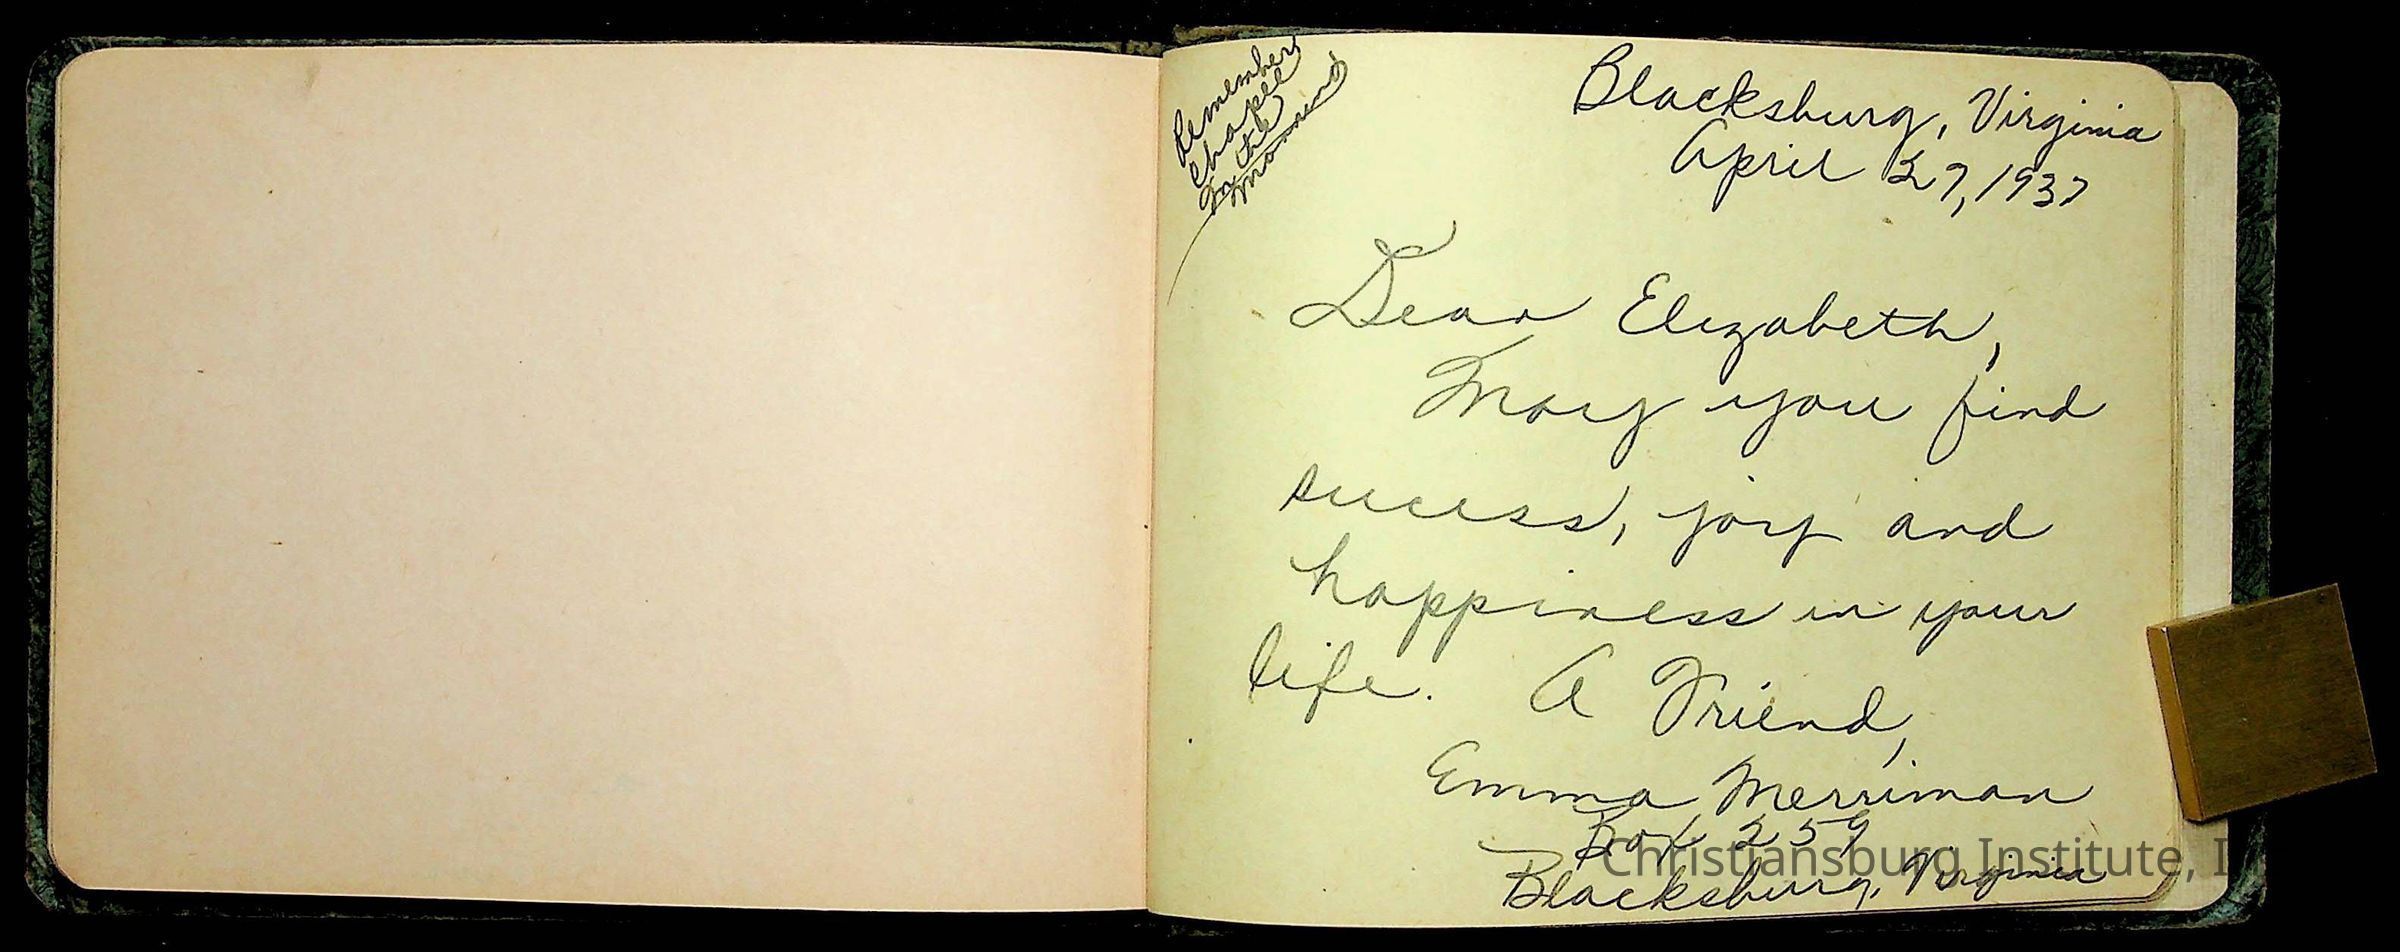 Remember
Chapel
In the
morning
Blacksburg, Virginia
April 27, 1937
Dear Elizabeth,
May you find
sucess, joy and
happiness in your
life. A Friend,
Emma Merriman
Box 259
Blacksburg, Virginia
Christiansburg Institute, I